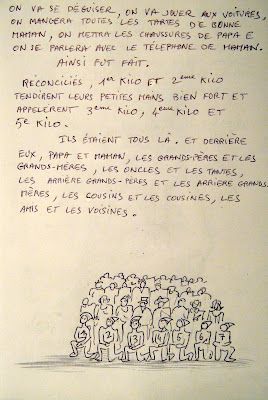 ON VA SE DÉGUISER, ON VA JOUER AUX VOITURES,
ON MANGERA TOUTES LES TARTES DE BONNE
MAMAN, ON METTRA LES CHAUSSURES DE PAPA E
ON SE PARLERA AVEC LE TÉLÉPHONE DE MAMAN.
AINSI FUT FAIT.
RÉCONCILIÉS, 1er KILO ET 2ème KILO
TENDIRENT LEURS PETITES MAINS BIEN FORT ET
APPELÈRENT 3ème KILO, 4ème KILO ET
5e KILO.
ILS ÉTAIENT TOUS LÀ. ET DERRIÈRE
EUX, PAPA ET MAMAN, LES GRANDS-PÈRES ET LES
GRANDS-MÈRES, LES ONCLES ET LES TANTES,
LES ARRIÈRE GRANDS-PÈRES ET LES ARRIÈRE GRANDS-
MÈRES, LES COUSINS ET LES COUSINES, LES
AMIS ET LES VOISINES.